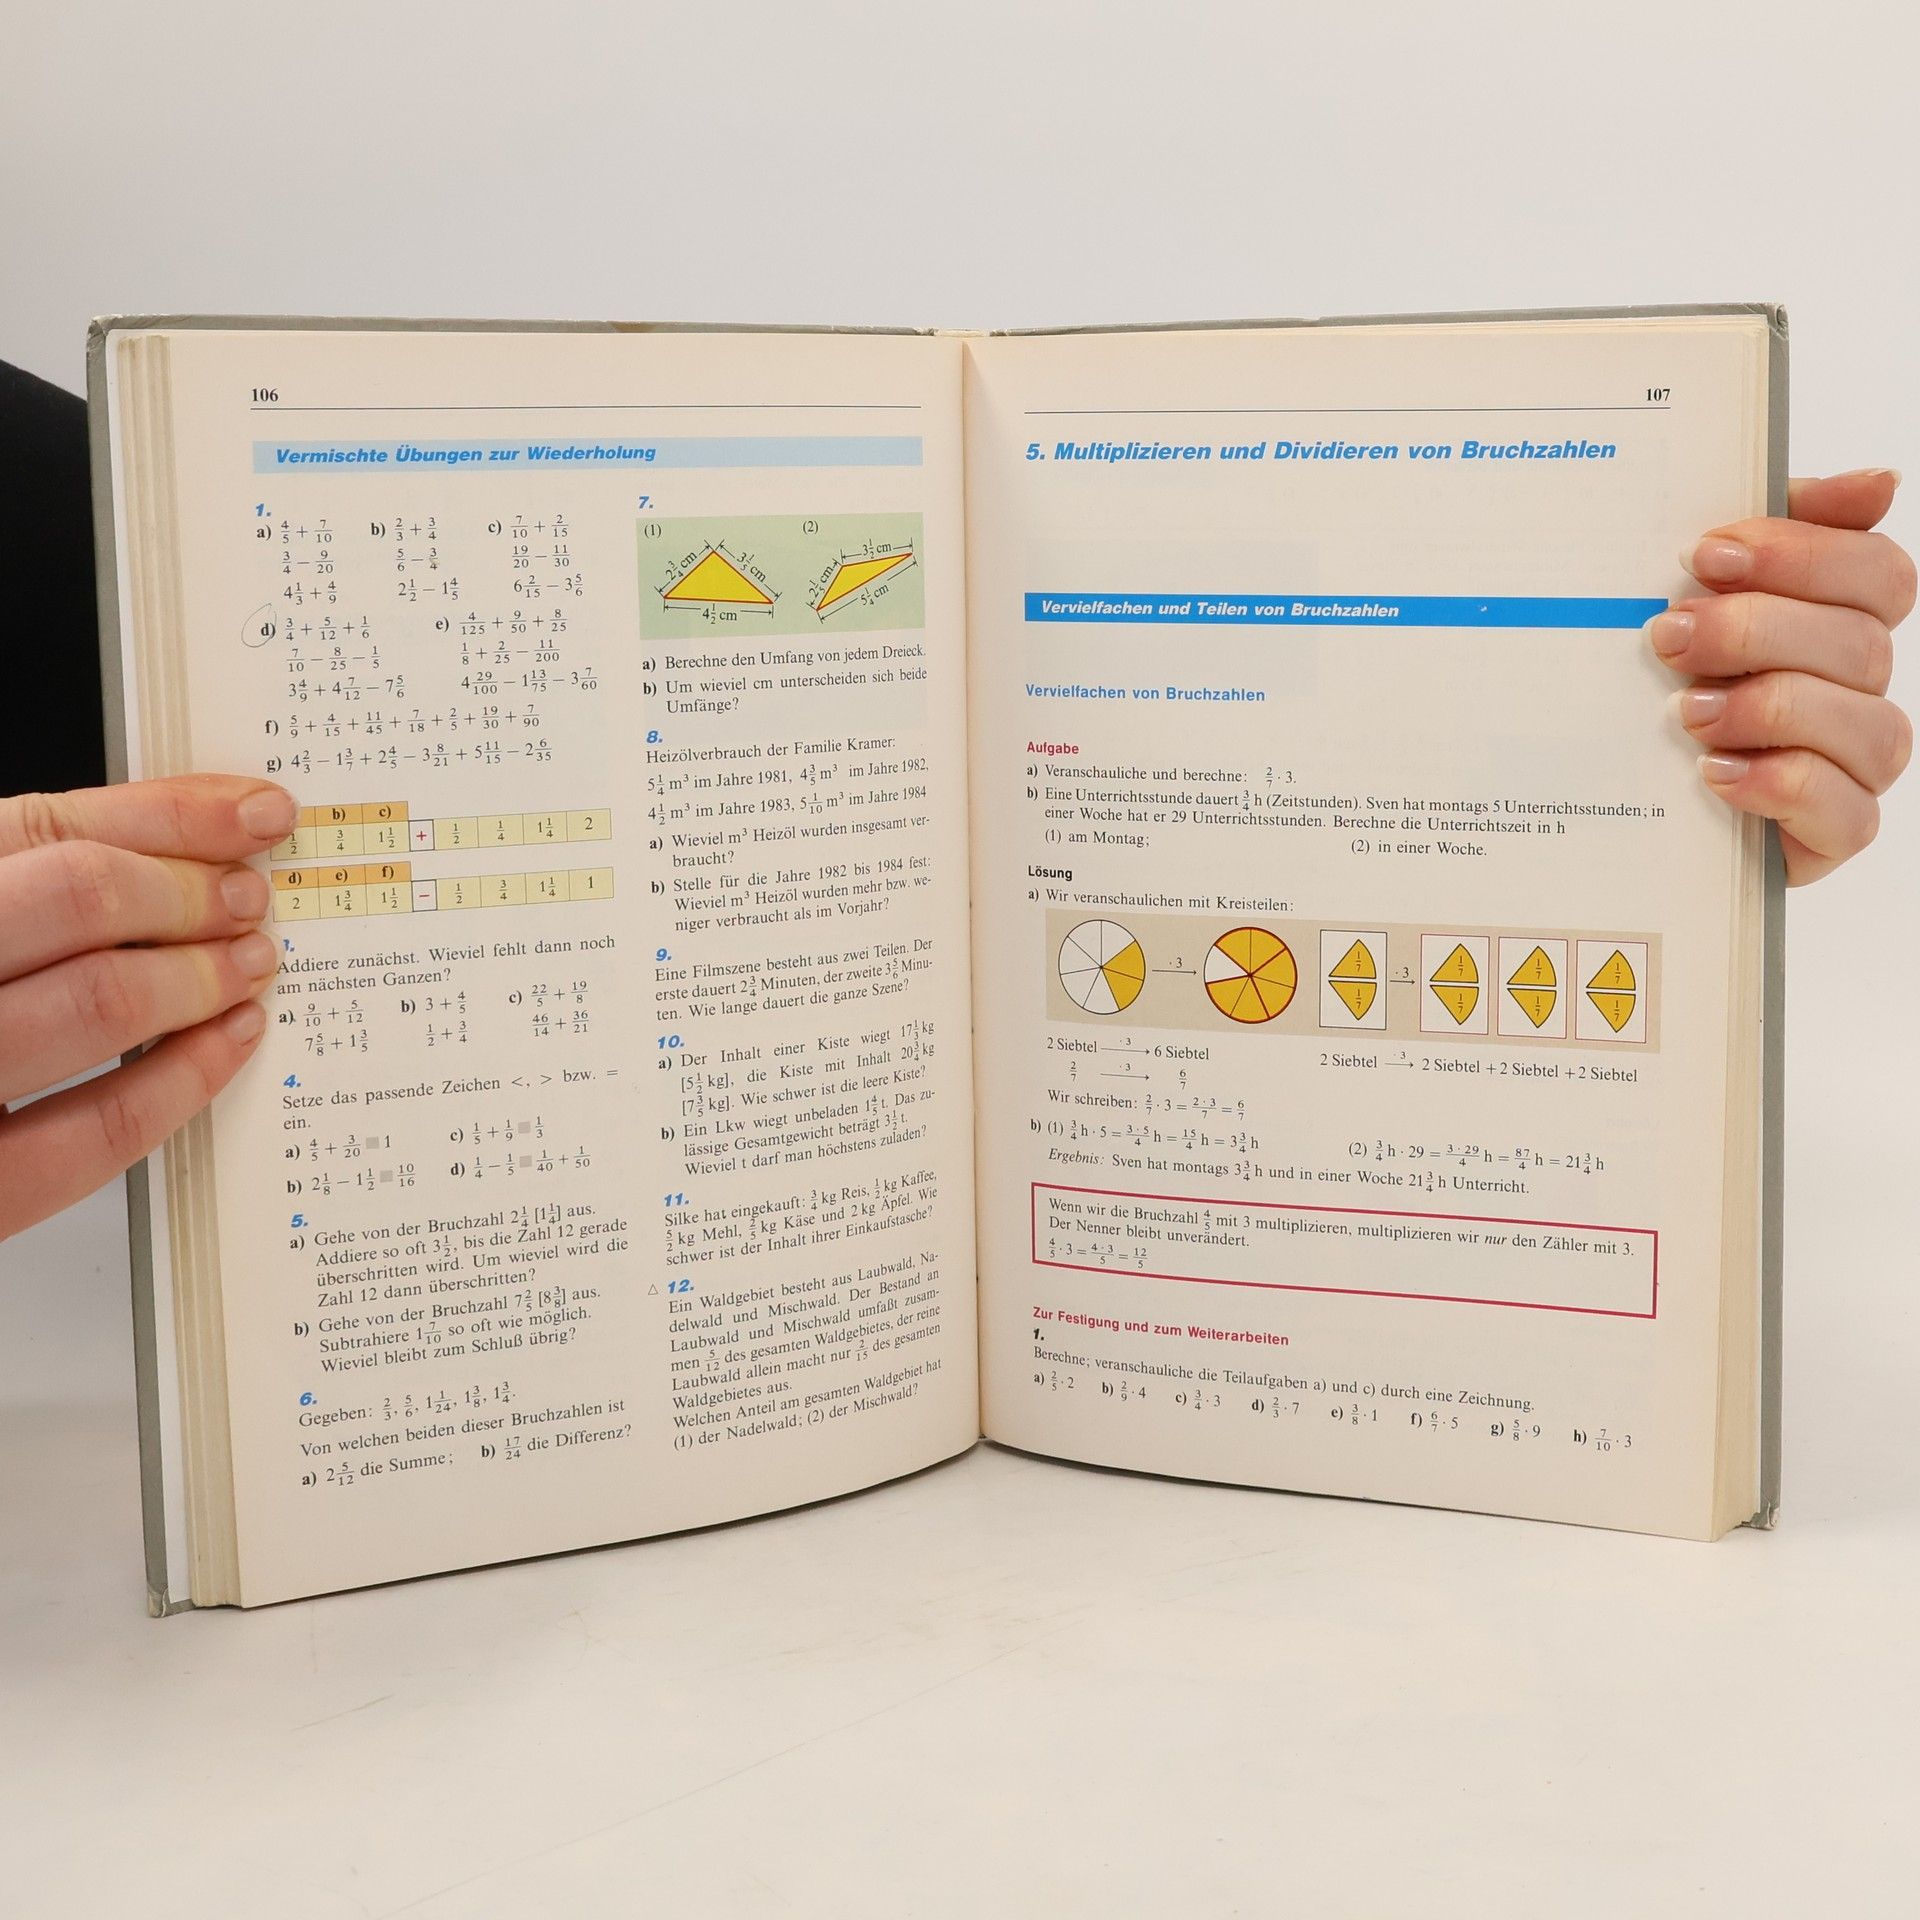 106
Vermischte Übungen zur Wiederholung
1.
a) 4/5 + 7/10 b) 2/3 + 3/4 c) 7/10 + 2/15
3/4 − 9/20 5/6 − 3/4 19/20 − 11/30
4 1/3 + 4/9 2 1/2 − 1 4/5 6 2/15 − 3 5/6
d) 3/4 + 5/12 + 1/6 e) 4/125 + 9/50 + 8/25
7/10 − 8/25 − 1/5 1/8 + 2/25 − 11/200
3 4/9 + 4 7/12 − 7 5/6 4 29/100 − 1 13/75 − 3 7/60
f) 5/9 + 4/15 + 11/45 + 7/18 + 2/5 + 19/30 + 7/90
g) 4 2/3 − 1 3/7 + 2 4/5 − 3 8/21 + 5 11/15 − 2 6/35
b) c)
1/2 3/4 1 1/2 + 1/2 1/4 1 1/4 2
d) e) f)
2 1 3/4 1 1/2 − 1/2 3/4 1 1/4 1
Addiere zunächst. Wieviel fehlt dann noch
am nächsten Ganzen?
a) 9/10 + 5/12 b) 3 + 4/5 c) 22/5 + 19/8
7 5/8 + 1 3/5 1/2 + 3/4 46/14 + 36/21
4.
Setze das passende Zeichen <, > bzw. =
ein.
a) 4/5 + 3/20 ■ 1 c) 1/5 + 1/9 ■ 1/3
b) 2 1/8 − 1 1/2 ■ 10/16 d) 1/4 − 1/5 ■ 1/40 + 1/50
5.
a) Gehe von der Bruchzahl 2 1/4 [1 1/4] aus.
Addiere so oft 3 1/2, bis die Zahl 12 gerade
überschritten wird. Um wieviel wird die
Zahl 12 dann überschritten?
b) Gehe von der Bruchzahl 7 2/5 [8 3/8] aus.
Subtrahiere 1 7/10 so oft wie möglich.
Wieviel bleibt zum Schluß übrig?
6.
Gegeben: 2/3, 5/6, 1 1/24, 1 3/8, 1 3/4.
Von welchen beiden dieser Bruchzahlen ist
a) 2 5/12 die Summe; b) 17/24 die Differenz?
7.
(1) (2)
2 3/4 cm 3 1/5 cm 4 1/2 cm
2 1/5 cm 3 1/2 cm 5 1/4 cm
a) Berechne den Umfang von jedem Dreieck.
b) Um wieviel cm unterscheiden sich beide
Umfänge?
8.
Heizölverbrauch der Familie Kramer:
5 1/4 m³ im Jahre 1981, 4 3/5 m³ im Jahre 1982,
4 1/2 m³ im Jahre 1983, 5 1/10 m³ im Jahre 1984
a) Wieviel m³ Heizöl wurden insgesamt ver-
braucht?
b) Stelle für die Jahre 1982 bis 1984 fest:
Wieviel m³ Heizöl wurden mehr bzw. we-
niger verbraucht als im Vorjahr?
9.
Eine Filmszene besteht aus zwei Teilen. Der
erste dauert 2 3/4 Minuten, der zweite 3 5/6 Minu-
ten. Wie lange dauert die ganze Szene?
10.
a) Der Inhalt einer Kiste wiegt 17 1/3 kg
[5 1/2 kg], die Kiste mit Inhalt 20 3/4 kg
[7 3/5 kg]. Wie schwer ist die leere Kiste?
b) Ein Lkw wiegt unbeladen 1 4/5 t. Das zu-
lässige Gesamtgewicht beträgt 3 1/2 t.
Wieviel t darf man höchstens zuladen?
11.
Silke hat eingekauft: 3/4 kg Reis, 1/2 kg Kaffee,
5/2 kg Mehl, 2/5 kg Käse und 2 kg Äpfel. Wie
schwer ist der Inhalt ihrer Einkaufstasche?
△ 12.
Ein Waldgebiet besteht aus Laubwald, Na-
delwald und Mischwald. Der Bestand an
Laubwald und Mischwald umfaßt zusam-
men 5/12 des gesamten Waldgebietes, der reine
Laubwald allein macht nur 2/15 des gesamten
Waldgebietes aus.
Welchen Anteil am gesamten Waldgebiet hat
(1) der Nadelwald; (2) der Mischwald?
107
5. Multiplizieren und Dividieren von Bruchzahlen
Vervielfachen und Teilen von Bruchzahlen
Vervielfachen von Bruchzahlen
Aufgabe
a) Veranschauliche und berechne: 2/7 · 3.
b) Eine Unterrichtsstunde dauert 3/4 h (Zeitstunden). Sven hat montags 5 Unterrichtsstunden; in
einer Woche hat er 29 Unterrichtsstunden. Berechne die Unterrichtszeit in h
(1) am Montag; (2) in einer Woche.
Lösung
a) Wir veranschaulichen mit Kreisteilen:
· 3 1/7 1/7 · 3 1/7 1/7 1/7 1/7 1/7 1/7
2 Siebtel · 3 → 6 Siebtel 2 Siebtel · 3 → 2 Siebtel + 2 Siebtel + 2 Siebtel
2/7 · 3 → 6/7
Wir schreiben: 2/7 · 3 = 2 · 3/7 = 6/7
b) (1) 3/4 h · 5 = 3 · 5/4 h = 15/4 h = 3 3/4 h (2) 3/4 h · 29 = 3 · 29/4 h = 87/4 h = 21 3/4 h
Ergebnis: Sven hat montags 3 3/4 h und in einer Woche 21 3/4 h Unterricht.
Wenn wir die Bruchzahl 4/5 mit 3 multiplizieren, multiplizieren wir nur den Zähler mit 3.
Der Nenner bleibt unverändert.
4/5 · 3 = 4 · 3/5 = 12/5
Zur Festigung und zum Weiterarbeiten
1.
Berechne; veranschauliche die Teilaufgaben a) und c) durch eine Zeichnung.
a) 2/5 · 2 b) 2/9 · 4 c) 3/4 · 3 d) 2/3 · 7 e) 3/8 · 1 f) 6/7 · 5 g) 5/8 · 9 h) 7/10 · 3